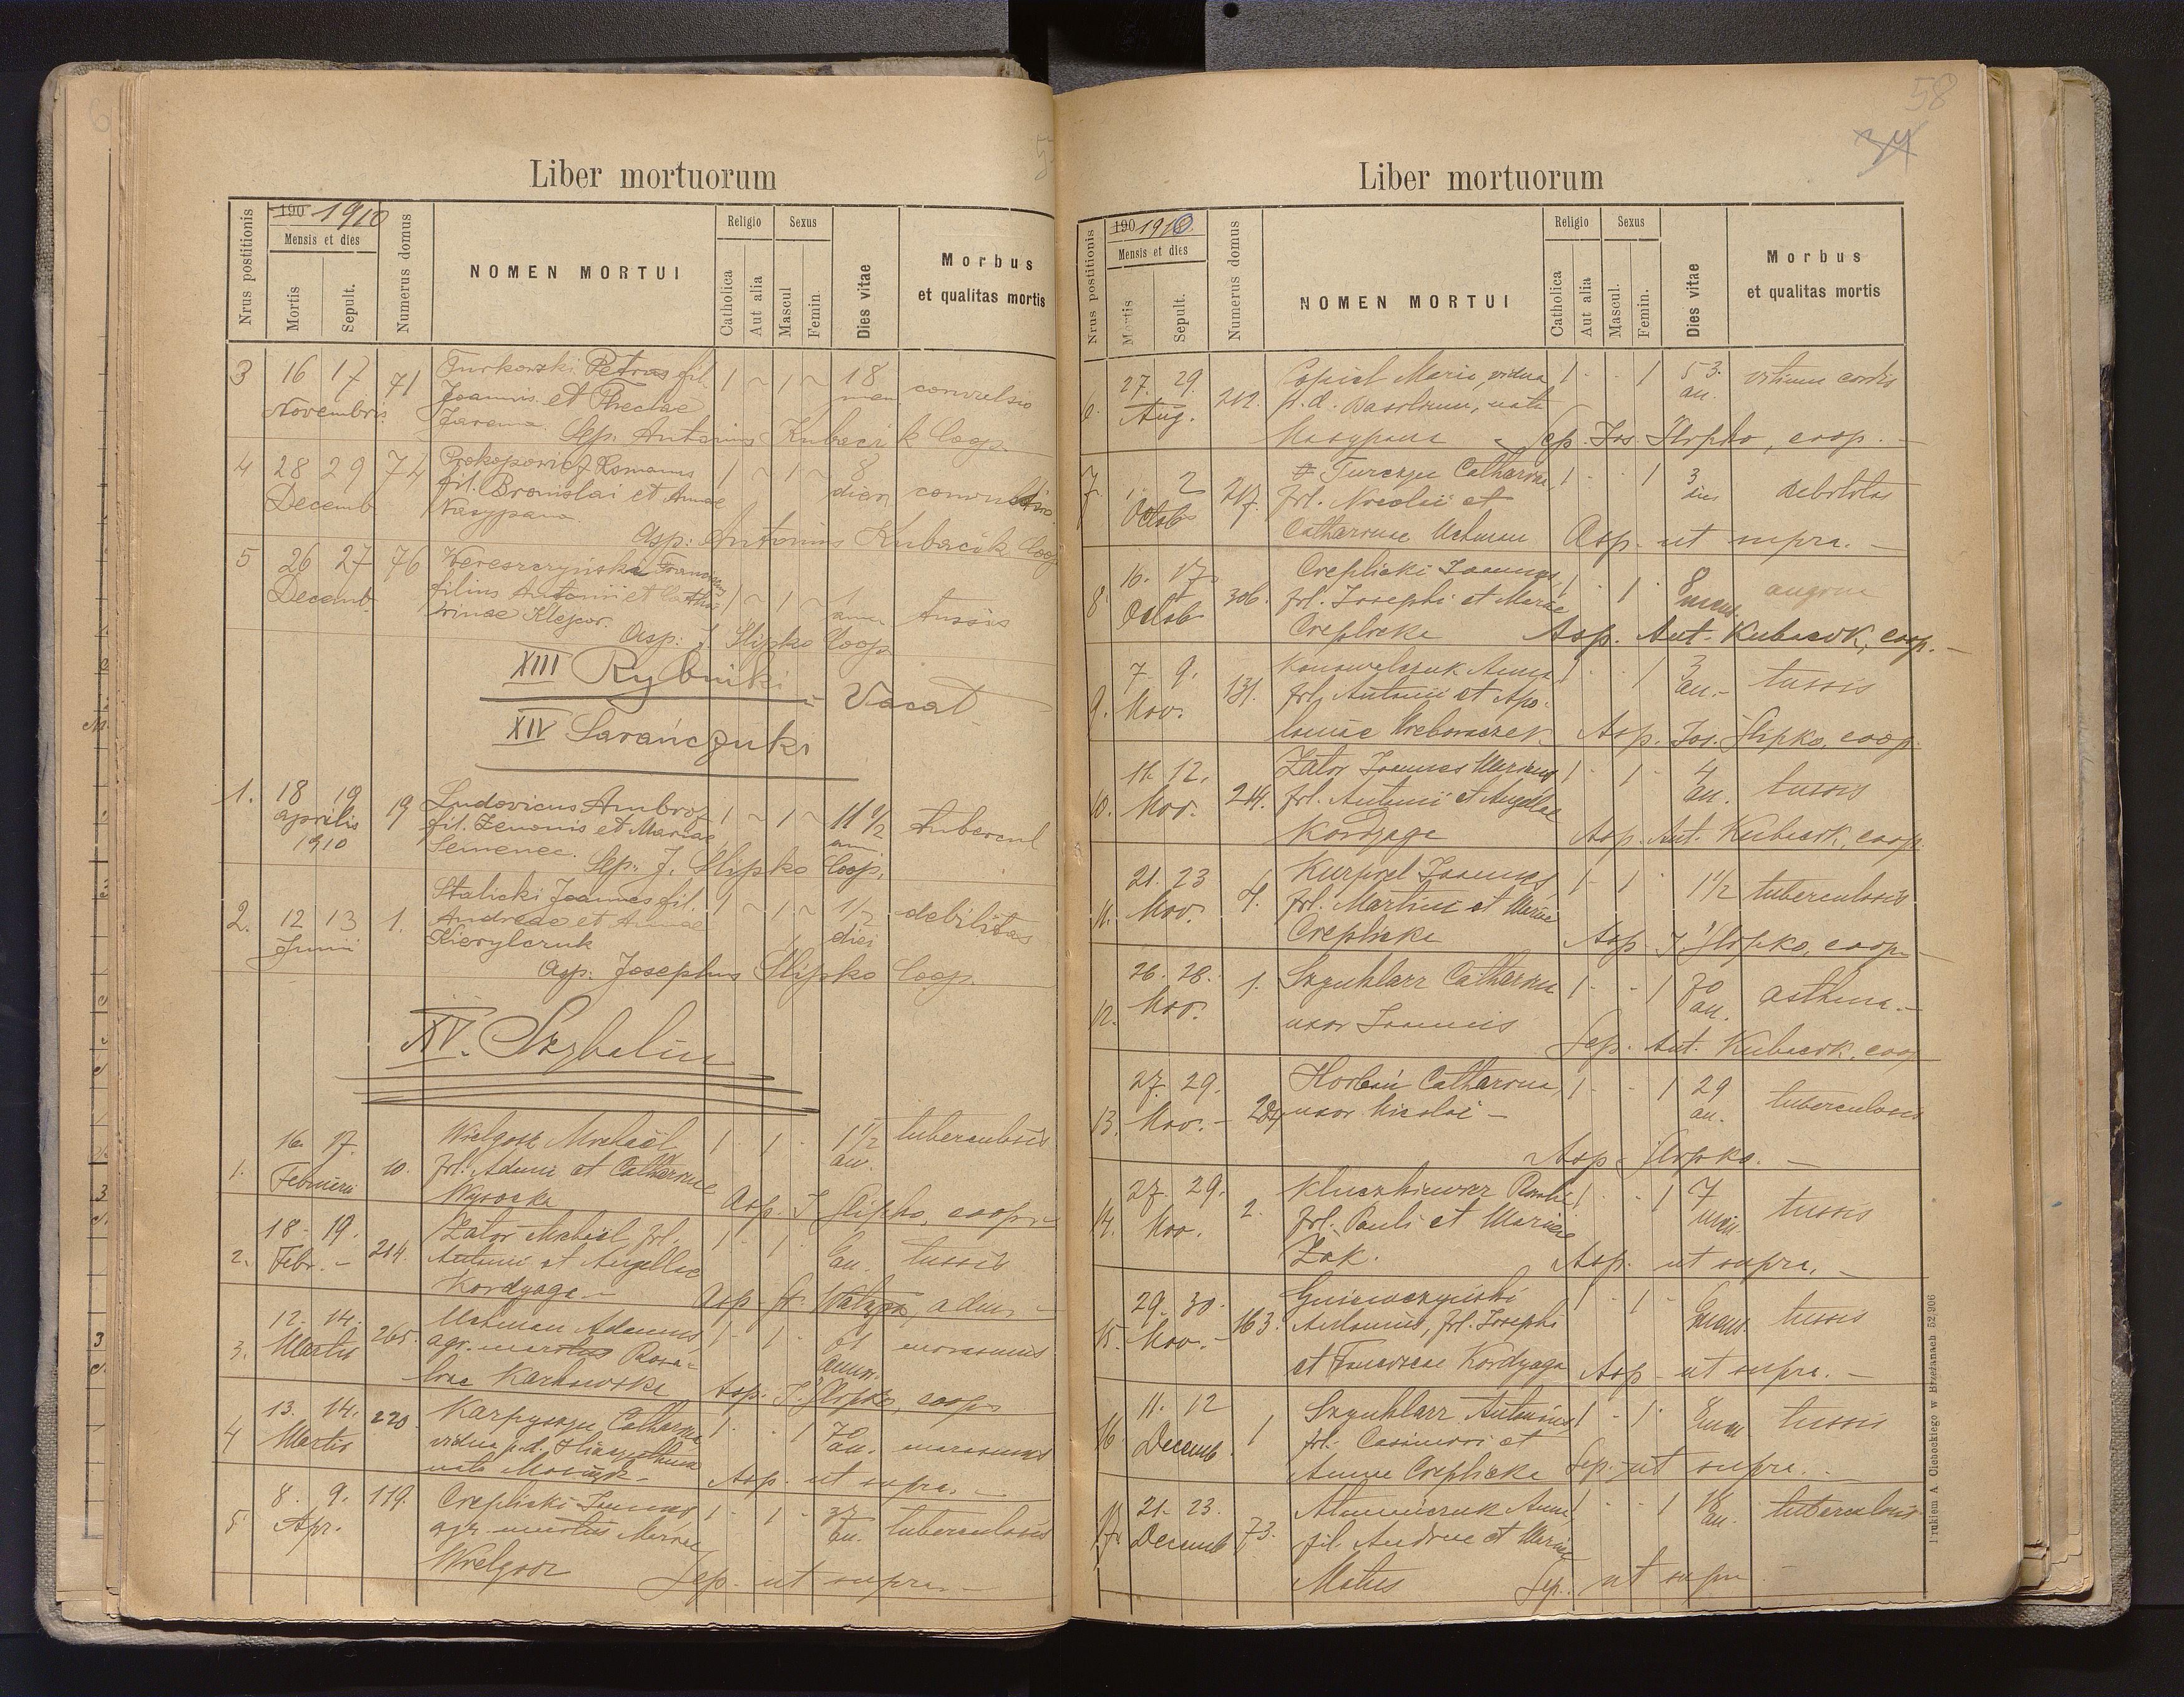 Liber mortuorum
Nrus postitionis
190 1910
Mensis et dies
Mortis
Sepult.
Numerus domus
NOMEN MORTUI
Religio
Catholica
Aut alia
Sexus
Mascul
Femin.
Dies vitae
Morbus
et qualitas mortis
3 16 17 71 Turkowski Petrus fil. 1 ~ 1 ~ 18 convulsio
Novembris Joannis et Theclae men
Jarema. Sep. Antonius Kubacik Coop.
4 28 29 74 Prokopowicz Romanus 1 ~ 1 ~ 8 convulsio
Decemb fil. Bronislai et Annae dier
Nasypana.
Asp: Antonius Kubacik Coop
5 26 27 76 Wereszczyński Franciscus 1 ~ 1 ~ 1 tussis
Decemb. filius Antonii et Catha anni
rinae Klepor. Asp: J. Slipko Coop.
XIII Rybniki - Vacat
XIV Sarańczuki
1. 18 19 19 Ludovicus Ambroz 1 ~ 1 ~ 11 1/2 tubercul
aprilis fil. Zenonis et Mariae an.
1910 Semenec. Sep: J. Slipko Coop.
2. 12 13 1. Stalicki Joannes fil. 1 ~ 1 ~ 1/2 debilitas
Junii Andreae et Annae diei
Kierylczuk
Asp. Josephus Slipko Coop.
XV. Szybalin
1. 16. 17. 10. Wielgosz Michaël 1 1 1 1/2 tuberculosis
Februarii fil. Adami et Catharinae an.
Wysocka Asp. J. Slipko, coop.
2. 18. 19. 214. Zator Michaël, fil. 1 - 1 - tussis
Febr. - Antonii et Angellae an.
Kordyaga - Asp. fr. adm. -
3. 12. 14. 265. Uchman Adamus, 1 - 1 - 61 marasmus
Martis agr. maritus Rosa= ann.
liae Karkowska Asp. J. Slipko, coop.
4 13. 14. 220 Karpyszyn Catharina 1 - - 1 70 marasmus
Martis vidua p.d. an.
nata Asp. ut supra. -
5 8. 9. 119. Creplicki Joannes 1 - 1 - 37 tuberculosis
Apr. agr. maritus Mariae an.
Wielgosz Sep. ut supra. -
58
34
Liber mortuorum
Nrus postitionis
190 1910
Mensis et dies
Mortis
Sepult.
Numerus domus
NOMEN MORTUI
Religio
Catholica
Aut alia
Sexus
Mascul.
Femin.
Dies vitae
Morbus
et qualitas mortis
6. 27. 29. 212. Copiel Maria, vidua 1 - - 1 53. vitium cordis
Aug. p. d. Basilium, nata an.
Nasypana - Sep. Jos. Slipko, coop. -
7. 1. 2 217. Turczyn Catharina, 1 - - 1 3 debilitas
Octob fil. Nicolai et dies
Catharinae Uchman Asp. ut supra. -
8. 16. 17. 306. Creplicki Joannes, 1 - 1 - 8 angina
Octob fil. Josephi et Mariae mens.
Creplicka Asp. Ant. Kubacik, coop. -
9. 7. 9. 131. Konowalczuk Anna 1 - - 1 3 tussis
Nov. fil. Antonii et Apo- an. -
loniae Asp. Jos. Slipko, coop.
10. 11. 12. 214. Zator Joannes Marianus 1 - 1 - 4 tussis
Nov. fil. Antonii et Angellae an.
Kordyaga Asp. Ant. Kubacik, coop
11. 21. 23 4. Kurpiel Joannes, 1 - 1 - 1 1/2 tuberculosis
Nov. fil. Martini et Mariae
Creplicka Asp. J. Slipko, coop. -
12. 26. 28. 1. Szynklarz Catharina 1 - - 1 70 asthma. -
Nov. uxor Joannis an.
Sep. Ant. Kubacik, coop
13. 27. 29. 284 Horbań Catharina, 1 - - 1 29 tuberculosis
Nov. - uxor Nicolai - an.
Asp. Slipko. -
14. 27. 29. 2. Kluczkiewicz Rosalia 1 - - 1 7 tussis
Nov. fil. Pauli et Mariae men.
Żak. Asp. ut supra. -
15. 29. 30. 163. Gniewczyński 1 - 1 - tussis
Nov. - Antonius, fil. Josephi mens.
et Franciscae Kordyaga Asp - ut supra. -
16. 11. 12 1 Szynklarz Antonius 1 - 1 - 8 tussis
Decemb. fil. Casimiri et men
Annae Creplicka Sep. ut supra. -
17. 21. 23. 73. Atamańczuk Anna 1 - - 1 18 tuberculosis
Decemb fil. Andreae et Mariae an.
Matus Sep. ut supra -
Drukiem A. Cienockiego w Brzeżanach 52/906